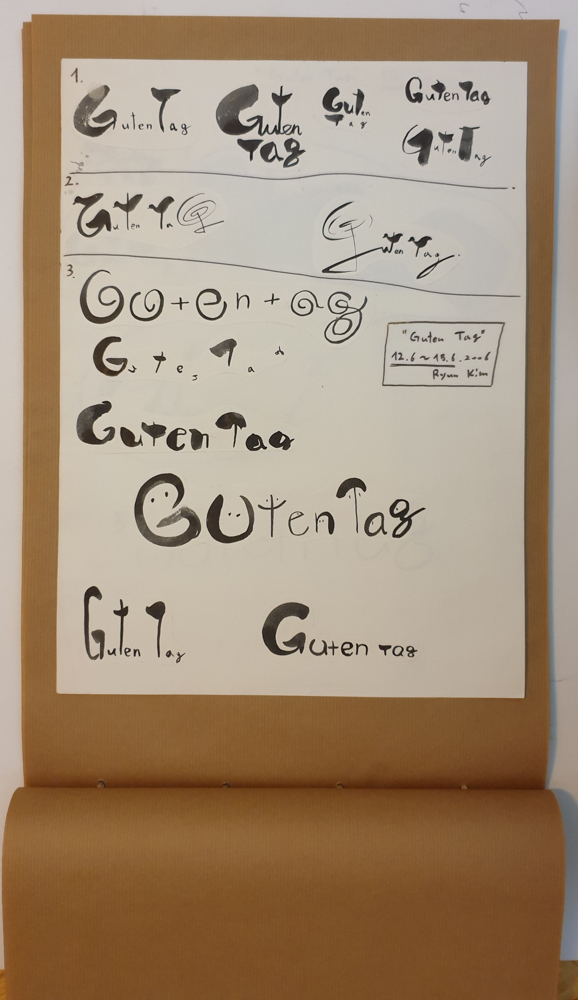 1.
Guten Tag
Guten
Tag
Guten
Tag
Guten Tag
Guten Tag
2.
Guten Tag
Guten Tag.
3.
Guten Tag
"Guten Tag"
12.6 ~ 18.6.2006
Ryun Kim
Guten Tag
Guten Tag
Guten Tag
Guten Tag